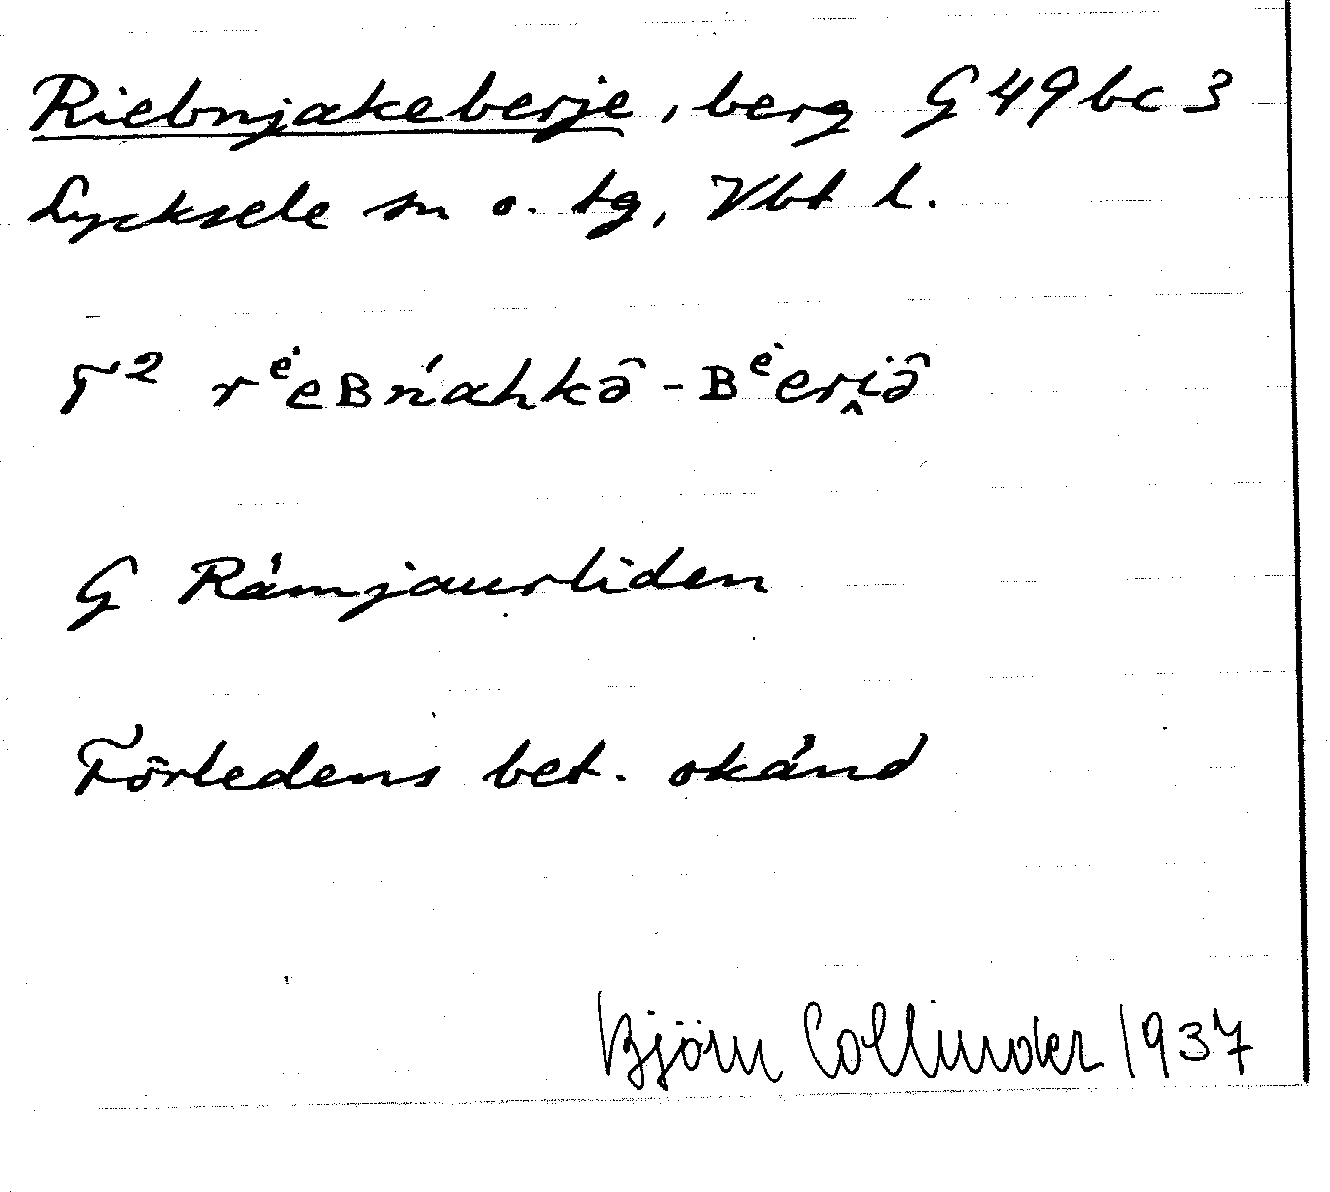 Riebnjakeberje, berg G 49 bc 3
Lycksele sn o. tg, Vbt l.
T² rᵉ̇eʙńahkə̑ - ʙᵉ̇eri̭ə̑
G Råmjaurliden
Förledens bet. okänd
Björn Collinder 1937